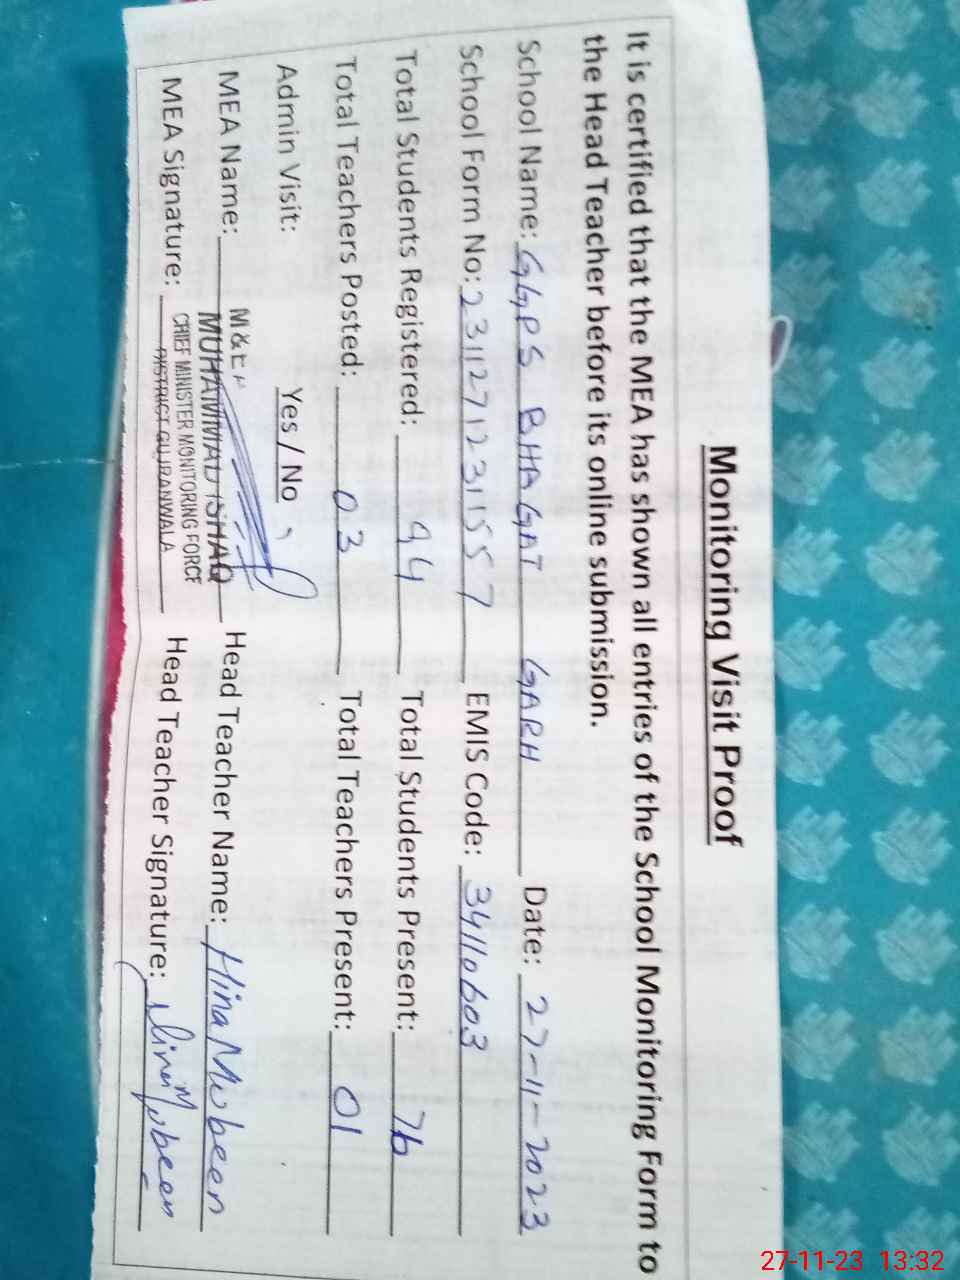 Monitoring Visit Proof
It is certified that the MEA has shown all entries of the School Monitoring Form to
the Head Teacher before its online submission.
School Name: GGPS BHAGAT GARH Date: 27-11-2023
School Form No: 231127123155 7 EMIS Code: 34110603
Total Students Registered: 94 Total Students Present: 76
Total Teachers Posted: 03 Total Teachers Present: 01
Admin Visit: Yes / No
MEA Name: MUHAMMAD ISHAQ Head Teacher Name: Hina Mubeen
CHIEF MINISTER MONITORING FORCE
DISTRICT GUJRANWALA
MEA Signature: Head Teacher Signature: Hina Mubeen
27-11-23 13:32